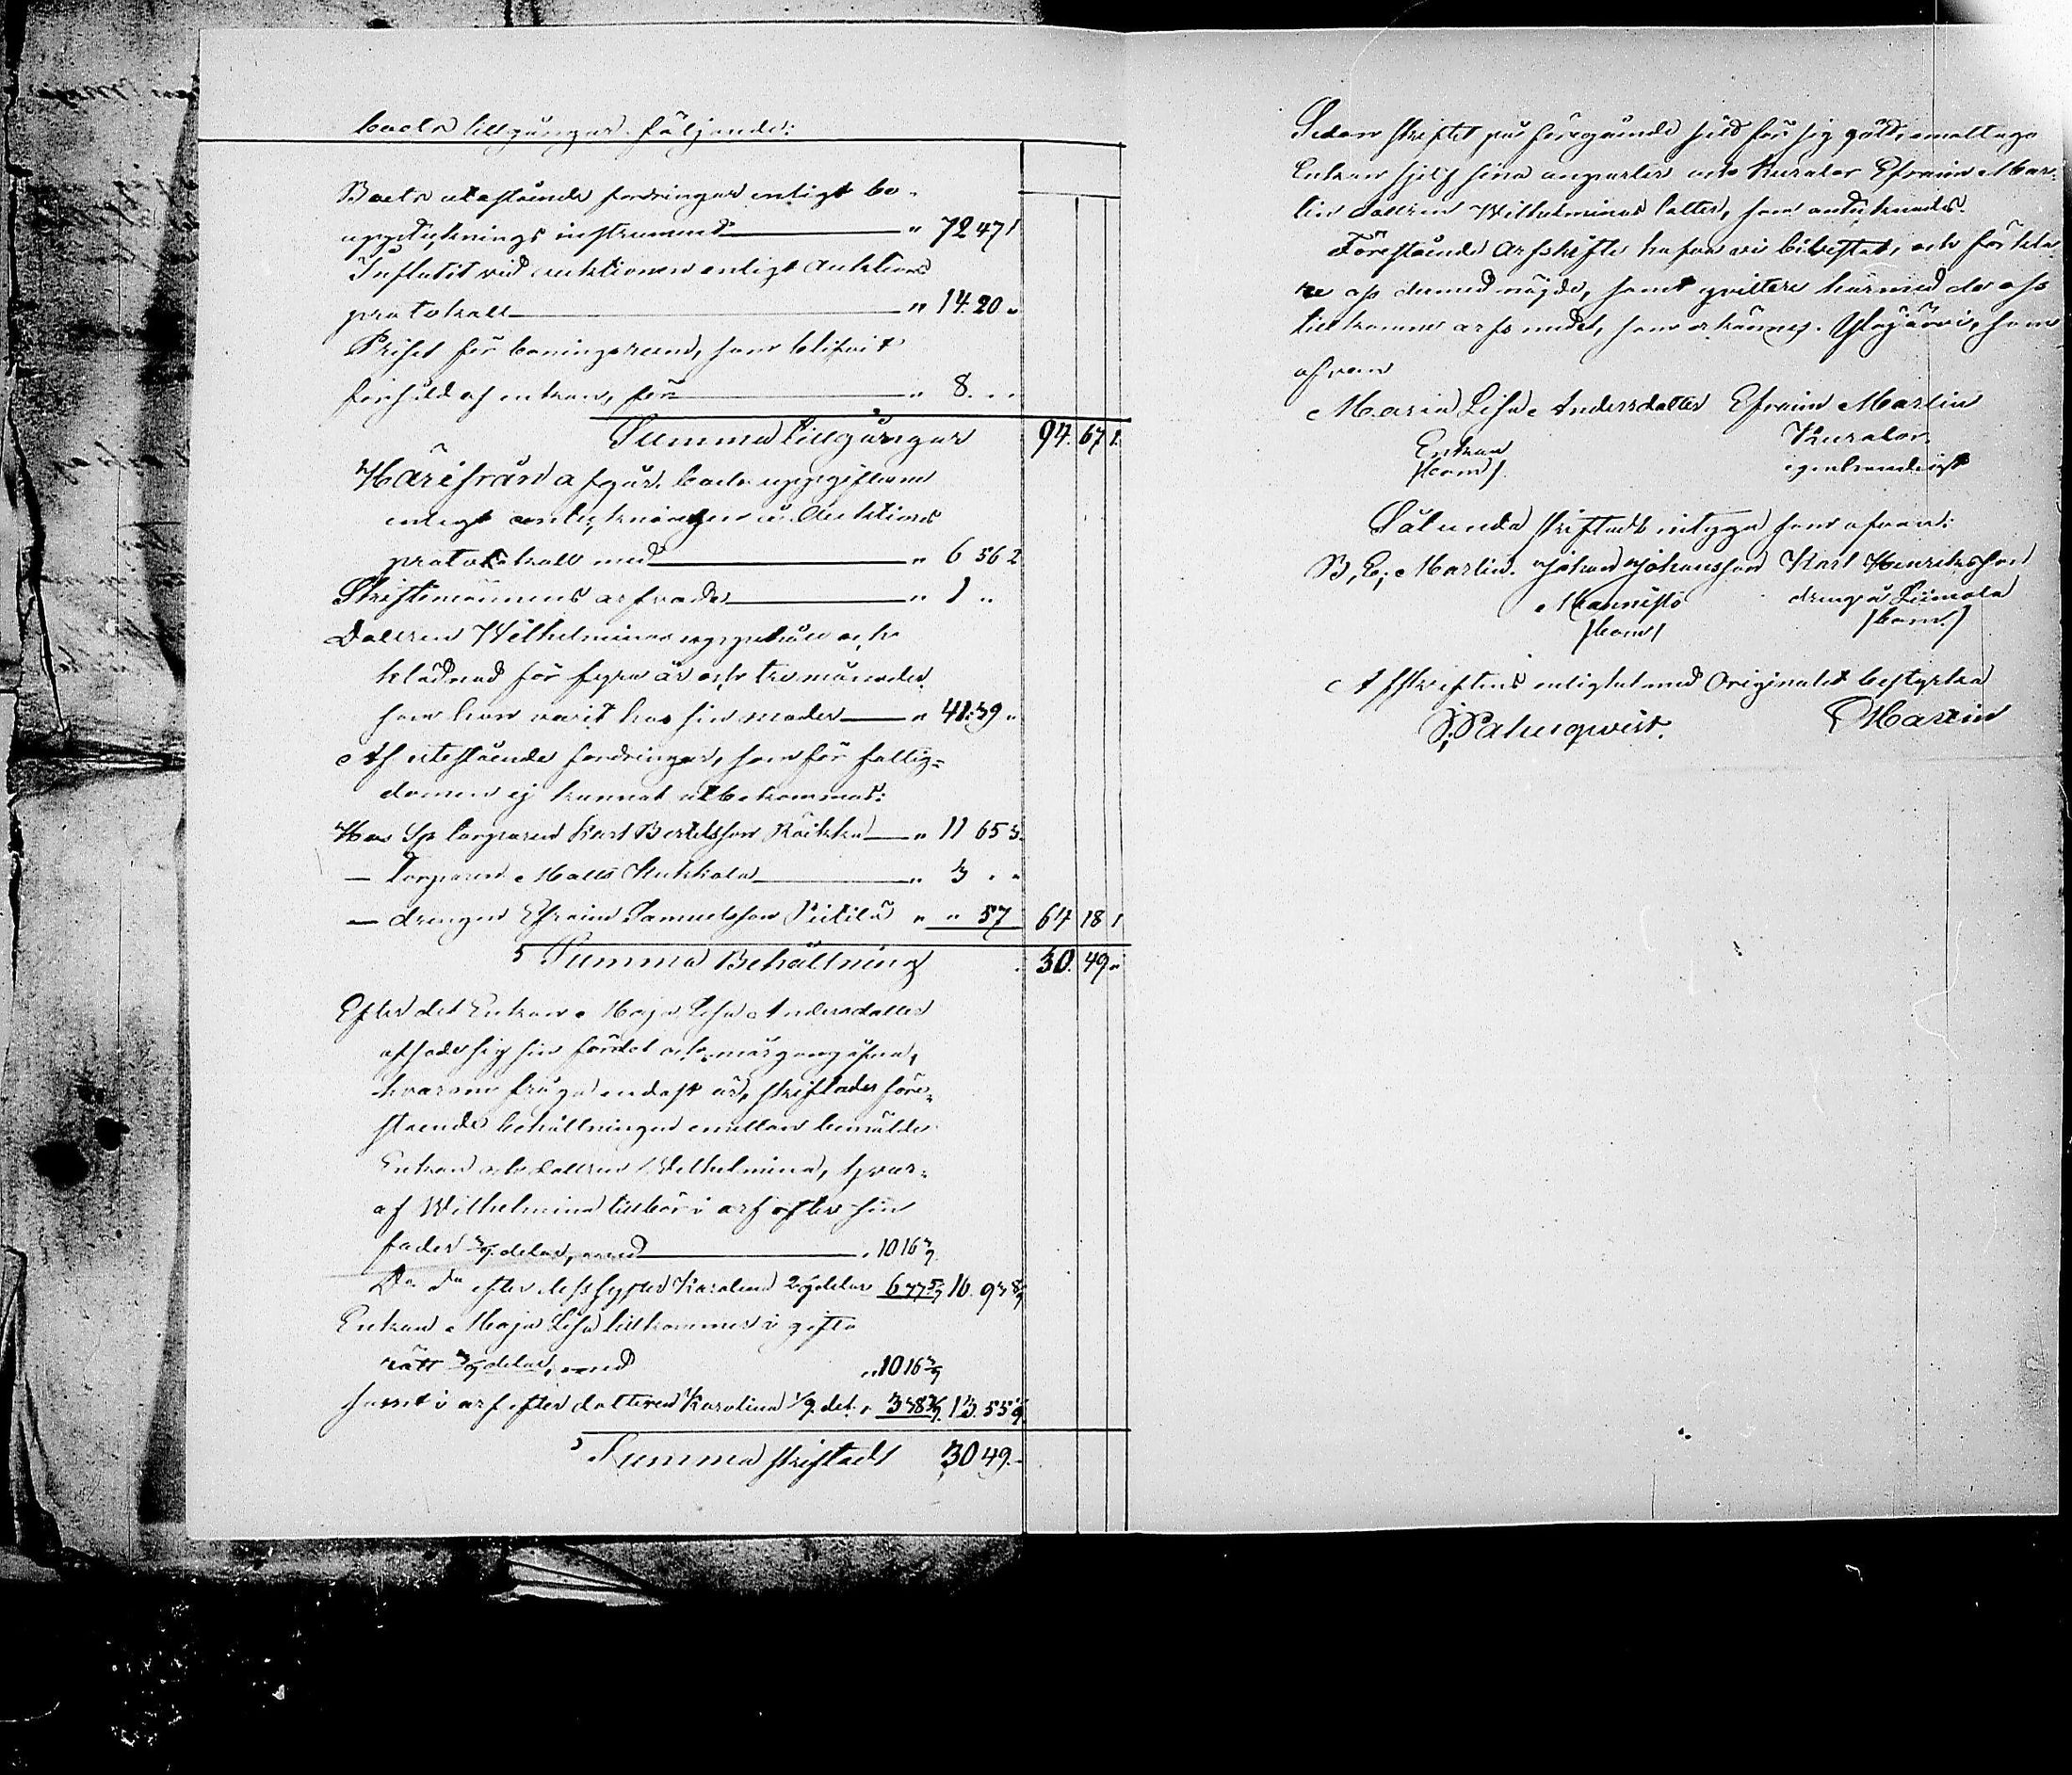 boets tillgångar följande:
Boets utestående fordringar enligt bo-
uppteknings instrumentet " 72 47 1
Influtit vid auktionen enligt Auktions
protokoll " 14. 20 "
Priset för boningsrum, som blifvit
förssåld af enkan, för " 8. . .
Summa Tillgångar 94. 67 1.
Härifrån afgår boets uppgifterne
enligt anteckningen å Auktions
protokoll med " 6 56 2
Skiftesmännens arfvode " 1 "
Dottren Wilhelminas uppehälle och
klädnad för fyra år och tre månader
som hon varit hos sin moder " 41: 39 "
Af utestående fordringar, som för fattig=
domen ej kunnat utbekommas:
Hos Sp torparen Karl Bertelsson Räikkä " 11 65 3.
— Torparen Matts Kukkola " 3 " "
— drengen Efraim Samuelsson Pietilä " " 57 64 18 1
Summa Behållning 30. 49 "
Efter det Enkan Maja Lisa Andersdotter
afsade sig sin fördel och morgongåfva,
hvarom fråga endast är, skiftades före=
stående behållningen emellan bemälde
Enkan och dottren Wilhelmina, hvar=
af Wilhelmina tillkor i arf efter sin
fader 3/9 delar, med " 10 16 3/9.
Do do efter dess syster Karolina 2/9 delar 6 77 5/9 16. 93 8/9
Enkan Maja Lisa tillkommer i gifto
rätt 3/9 delar, med " 10 16 3/9
samt i arf efter dottren Karolina 1/9. del. " 3 38 7/9. 13. 55 1/9.
Summa skiftadt 30 49. -
Sedan skiftet på föregående sätt för sig gått, emottogo
Enkan sjelf sina anparter och Kurator Efraim Mar=
lin dottren Wilhelminas lotter, som antecknades.
Förestående Arfskifte hafva vi bivistat, och förkla
re oss dermed nöjde, samt qvittere härmed de oss
tillkomne arfs medel, som erkännes. Ylöjärvi, som
ofvan
Maria Lisa Andersdotter Efraim Marlin
Enkan Kurator
/bom/ egenhändigt
Sålunda skiftadt intyga som ofvan:
B, E, Marlin. Johan Johansson Karl Henriksson
Mannistö dreng å Siimola
/bom/ /bom./
Afskriftens enlighet med Originalet bestyrka
Marlin